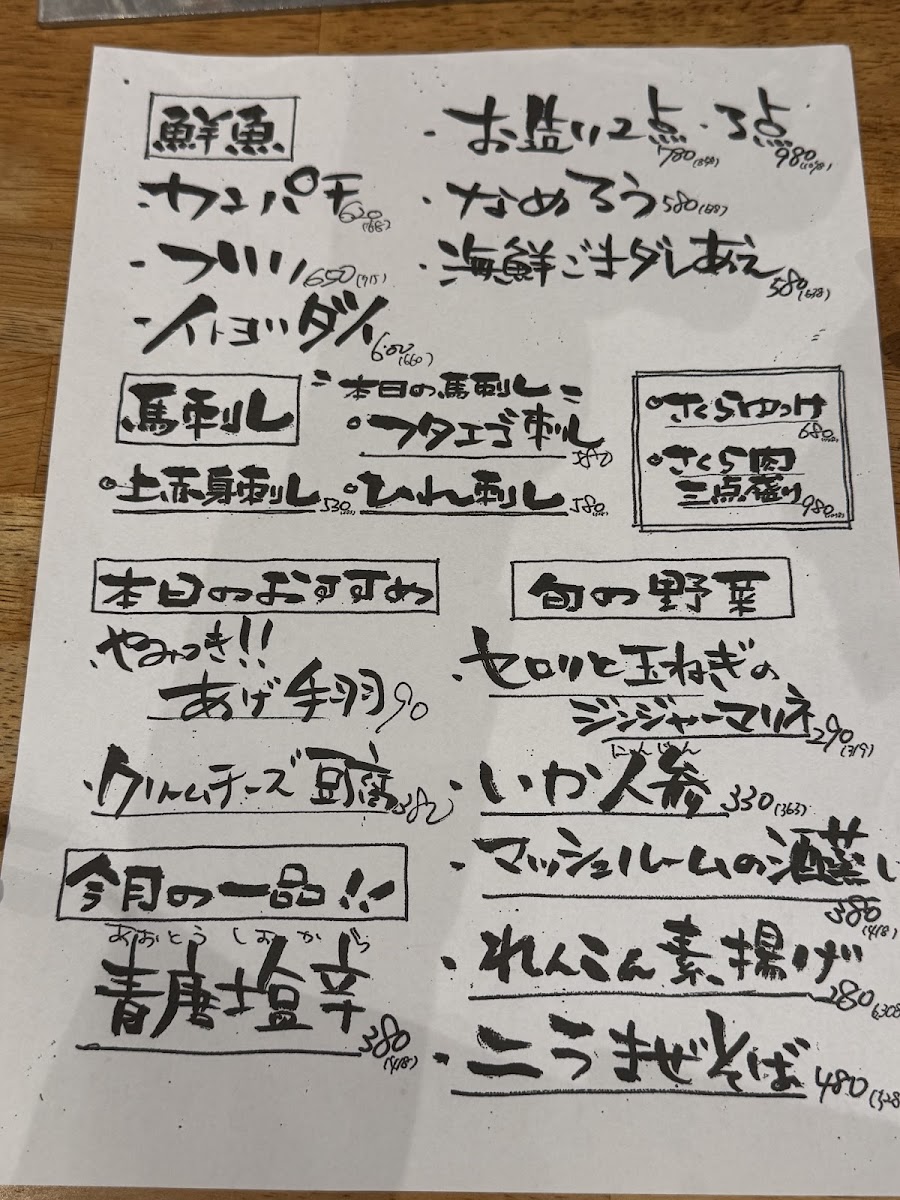 鮮魚
・カンパチ 620(682)
・ブリ 650(715)
・イトヨリダイ 600(660)
・お造り2点 780(858)・3点 980(1078)
・なめろう 580(638)
・海鮮ごまダレあえ 580(638)
馬刺し
本日の馬刺し
フタエゴ刺し 580
上赤身刺し 530
ひれ刺し 580
さくらゆっけ 680
さくら肉
三点盛り 980
本日のおすすめ
やみつき!!
あげ手羽 90
・クリームチーズ豆腐 380
今月の一品!!
あおとうしおから
青唐塩辛 380(418)
旬の野菜
・セロリと玉ねぎの
ジンジャーマリネ 290(319)
にんじん
・いか人参 330(363)
・マッシュルームの酒蒸し
380(418)
・れんこん素揚げ 280(308
・ニラまぜそば 480(528